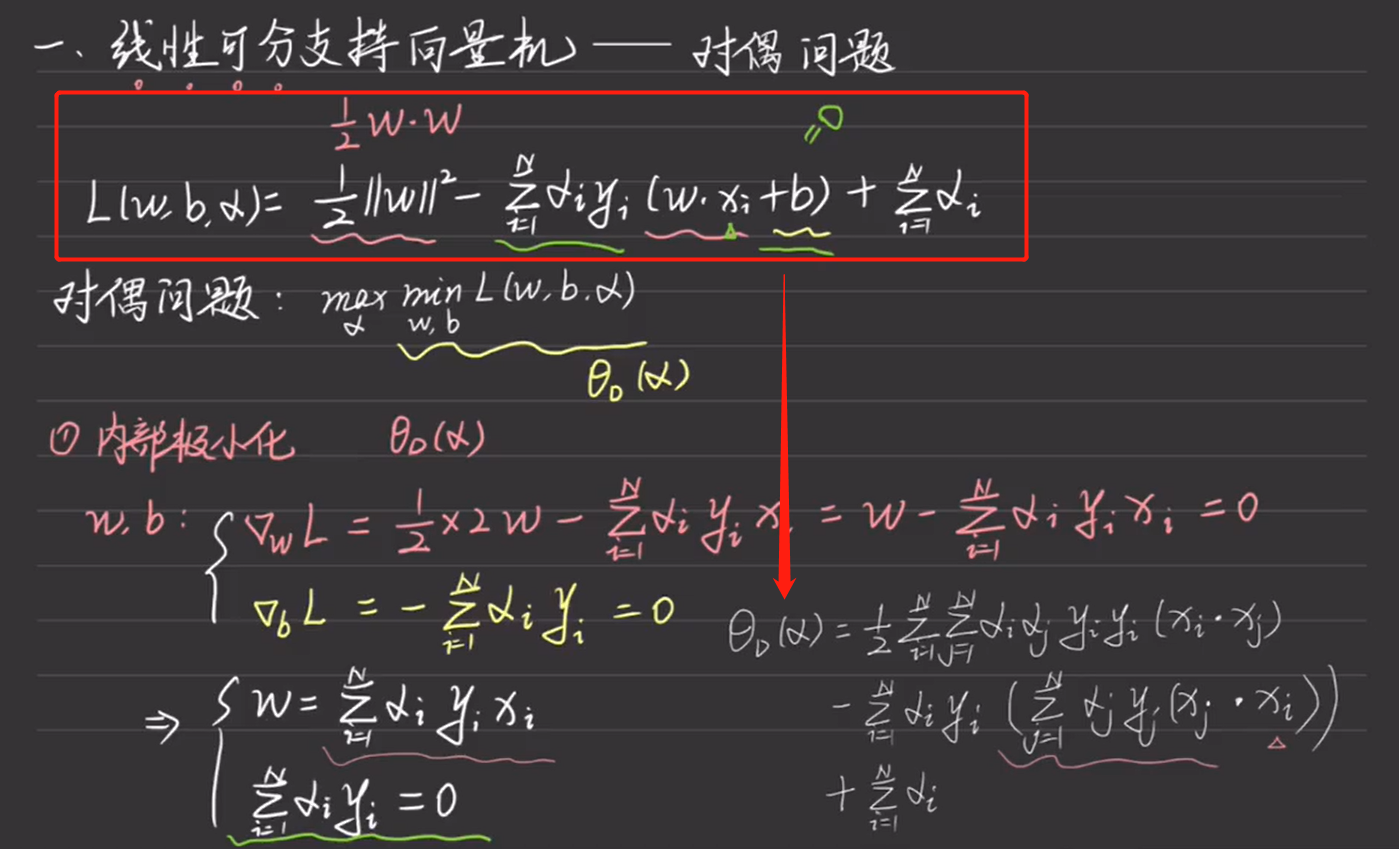 一、线性可分支持向量机 —— 对偶问题
½ w·w =0
L(w,b,α)= ½||w||² - ∑_{i=1}^{N} α_i y_i (w·x_i+b) + ∑_{i=1}^{N} α_i
对偶问题: max_α min_{w,b} L(w,b,α)
θ_D(α)
① 内部极小化 θ_D(α)
w,b: { ∇_w L = ½×2w - ∑_{i=1}^{N} α_i y_i x_i = w - ∑_{i=1}^{N} α_i y_i x_i = 0
∇_b L = - ∑_{i=1}^{N} α_i y_i = 0
⇒ { w = ∑_{i=1}^{N} α_i y_i x_i
∑_{i=1}^{N} α_i y_i = 0
θ_D(α) = ½ ∑_{i=1}^{N} ∑_{j=1}^{N} α_i α_j y_i y_i (x_i·x_j)
- ∑_{i=1}^{N} α_i y_i (∑_{j=1}^{N} α_j y_j (x_j·x_i))
+ ∑_{i=1}^{N} α_i